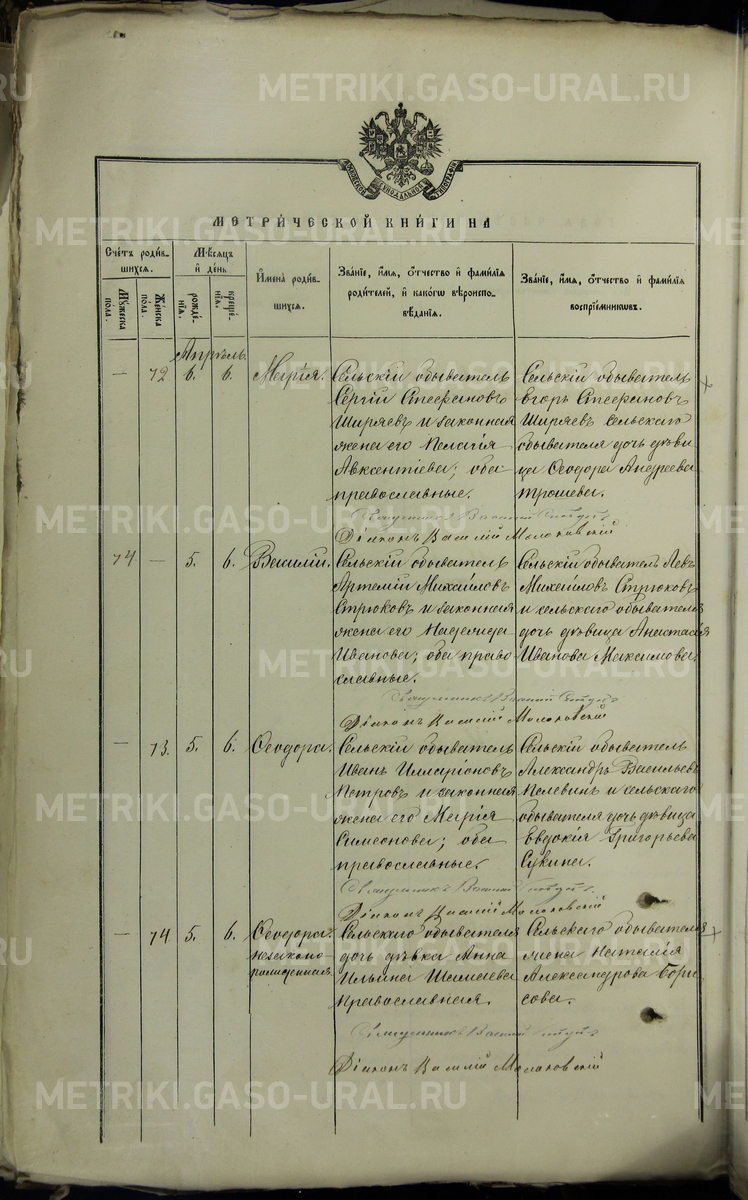 METRIKI.GASO-URAL.RU
МОСКОВСКОЙ СѴНОДАЛЬНОЙ ТИПОГРАФІИ
МЕТРИ́ЧЕСКОЙ КНИ́ГИ НА
Сче́тъ роди́вшихся.
Му́жеска по́ла.
Же́нска по́ла.
Мѣ́сяцъ и҆ де́нь
рожде́нїя.
креще́нїя.
И҆мена̀ роди́вшихся.
Зва́нїе, и҆́мя, ѻ҆́тчество и҆ фами́лїя роди́телей, и҆ како́гѡ вѣроисповѣ́данїя.
Зва́нїе, и҆́мя, ѻ҆́тчество и҆ фами́лїя воспрїе́мникѡвъ.
Апрѣль.
— 72 6. 6. Марія.
Сельскій обыватель
Сергій Агафановъ
Ширяевъ и законная
жена его Пелагія
Авксентіева; оба
православные.
Сельскій обыватель
Егоръ Агафановъ
Ширяевъ сельскаго
обывателя дочь дѣви
ца Ѳеодора Андреева
Трошева.
Священникъ Василій
Діаконъ Василій Молоковскій
74 — 5. 6. Василій.
Сельскій обыватель
Артемій Михайловъ
Стрюковъ и законная
жена его Надежда
Иванова; оба право
славные.
Сельскій обыватель Левъ
Михайловъ Стрюковъ
и сельскаго обывателя
дочь дѣвица Анастасія
Иванова Максимова.
Священникъ Василій
Діаконъ Василій Молоковскій
— 73. 5. 6. Ѳеодора.
Сельскій обыватель
Иванъ Илларіоновъ
Петровъ и законная
жена его Марія
Симеонова; оба
православные.
Сельскій обыватель
Александръ Васильевъ
Пелевинъ и сельскаго
обывателя дочь дѣвица
Евдокія Григорьева
Сукина.
Священникъ Василій
Діаконъ Василій Молоковскій
— 74 5. 6. Ѳеодора.
незаконно
рожденная.
Сельскаго обывателя
дочь дѣвка Анна
Ильина Шамаева
православная.
Сельскаго обывателя
жена Наталія
Александрова Бори
сова.
Священникъ Василій
Діаконъ Василій Молоковскій